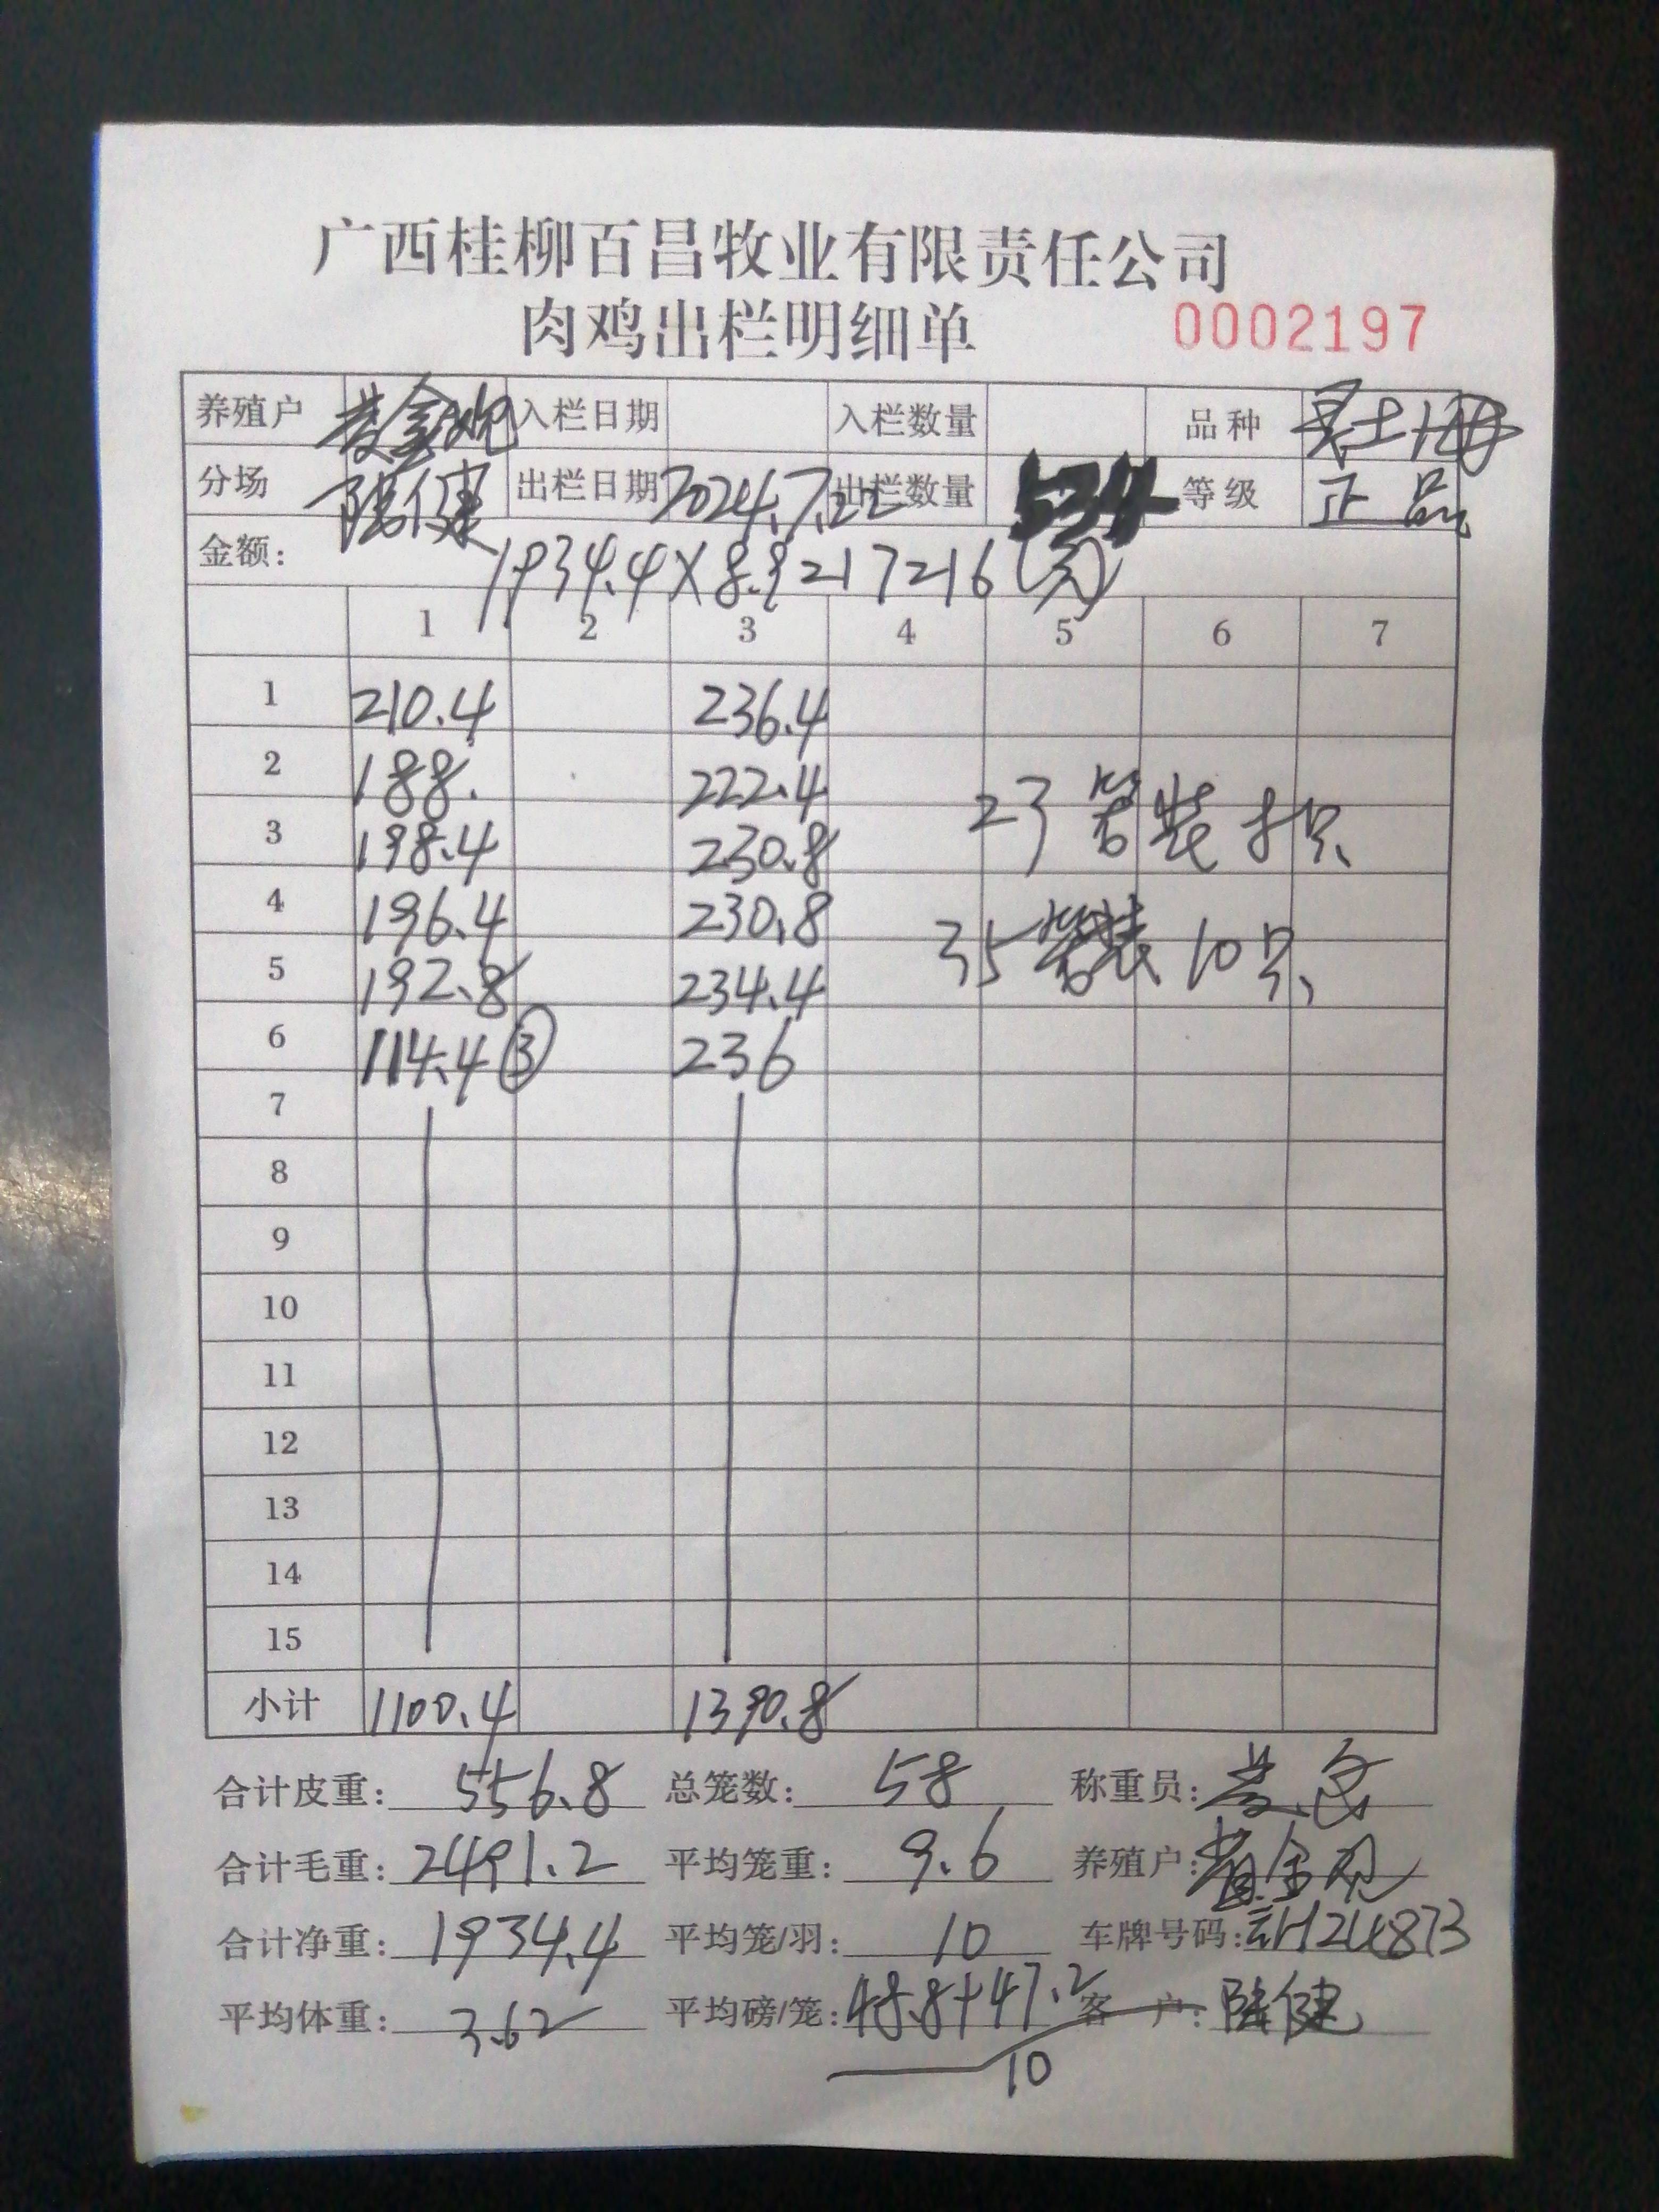 广西桂柳百昌牧业有限责任公司
肉鸡出栏明细单 0002197
养殖户 黄金 入栏日期 入栏数量 品种 土
分场 陆健 出栏日期 2024.7.22 出栏数量 534 等级 正品
金额: 1934.4×8.9=17216(元)
1 2 3 4 5 6 7
1 210.4 236.4
2 188. 222.4
23笼装 只
3 198.4 230.8
4 196.4 230.8
35笼装10只
5 192.8 234.4
6 114.4 ③ 236
7
8
9
10
11
12
13
14
15
小计 1100.4 1390.8
合计皮重: 556.8 总笼数: 58 称重员: 黄
合计毛重: 2491.2 平均笼重: 9.6 养殖户: 黄金
合计净重: 1934.4 平均笼/羽: 10 车牌号码: H24873
平均体重: 3.62 平均磅/笼: 48.8+47.2 客 户: 陆健
10